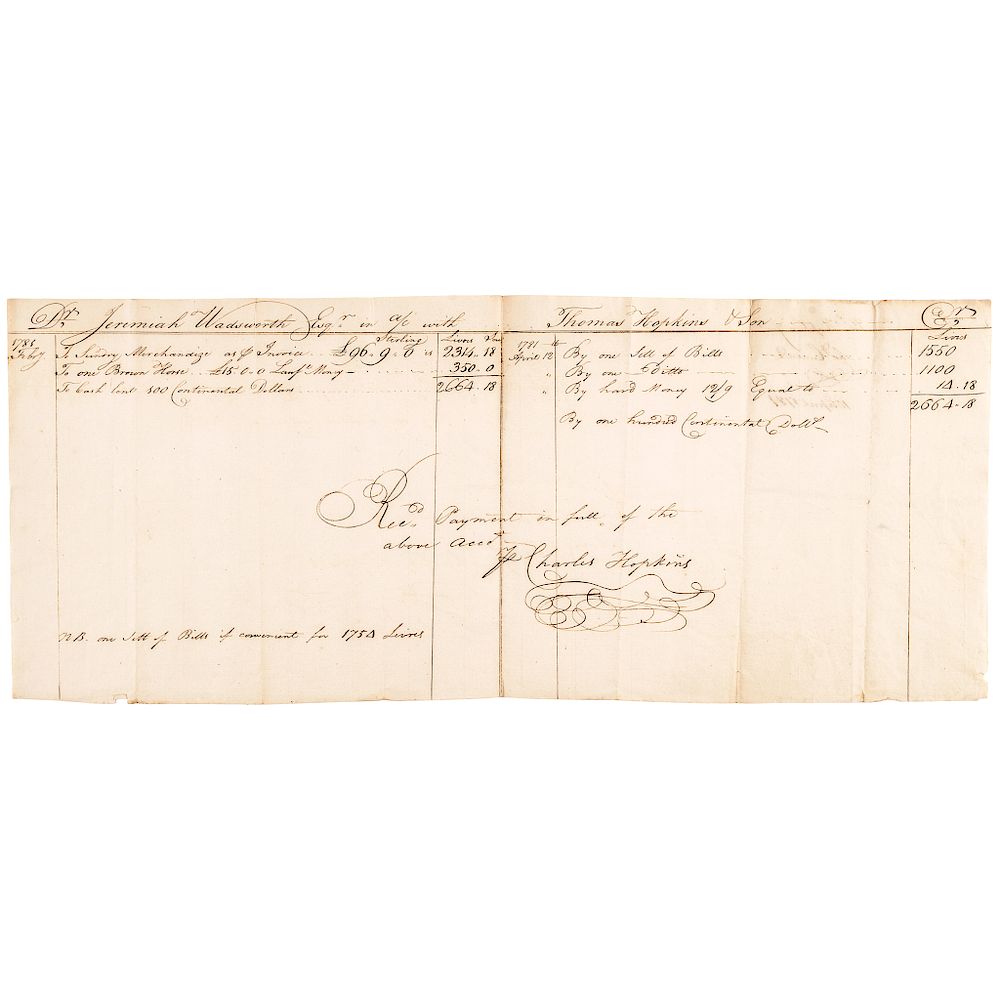 Dr. Jeremiah Wadsworth Esqr. in a/c with
Sterling Livres
1781 Feby To Sundry Merchandize as ₱ Invoice £96.9.0 is 2314.18
To one Brown Horse £15.0.0 Lawf. Mony 350.0
To Cash lent 100 Continental Dollars 2664.18
Thomas Hopkins & Son Cr.
Livres
1781 April 12th By one Sett of Bills 1550
" By one Ditto 1100
" By hard Money 12/9 Equal to 14.18
2664.18
By one hundred Continental Dolls.
Recd. Payment in full of the
above Acct.
Charles Hopkins
NB. one Sett of Bills if convenient for 1750 Livres